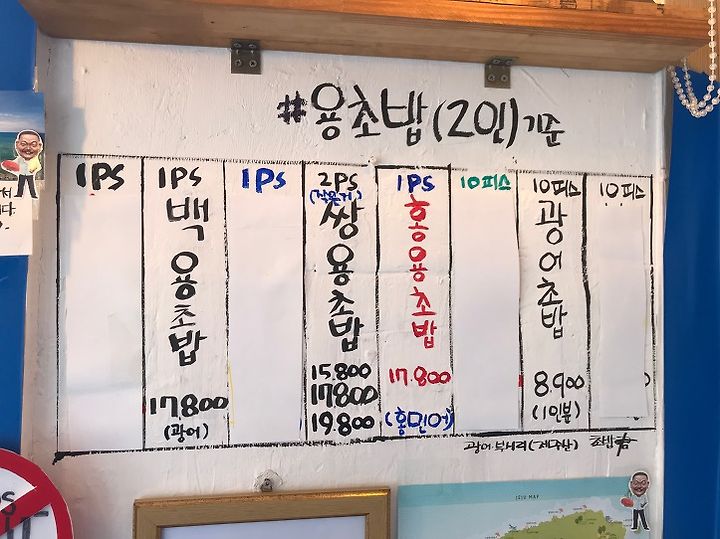 #용초밥(2인)기준
1PS
1PS
백용초밥
17.800
(광어)
1PS
2PS
(작은거)
쌍용초밥
15.800
17.800
19.800
1PS
홍용초밥
17.800
(홍민어)
10피스
10피스
광어초밥
8.900
(1인분)
10피스
광어·부시리(제주산)
JEJU MAP
서
다